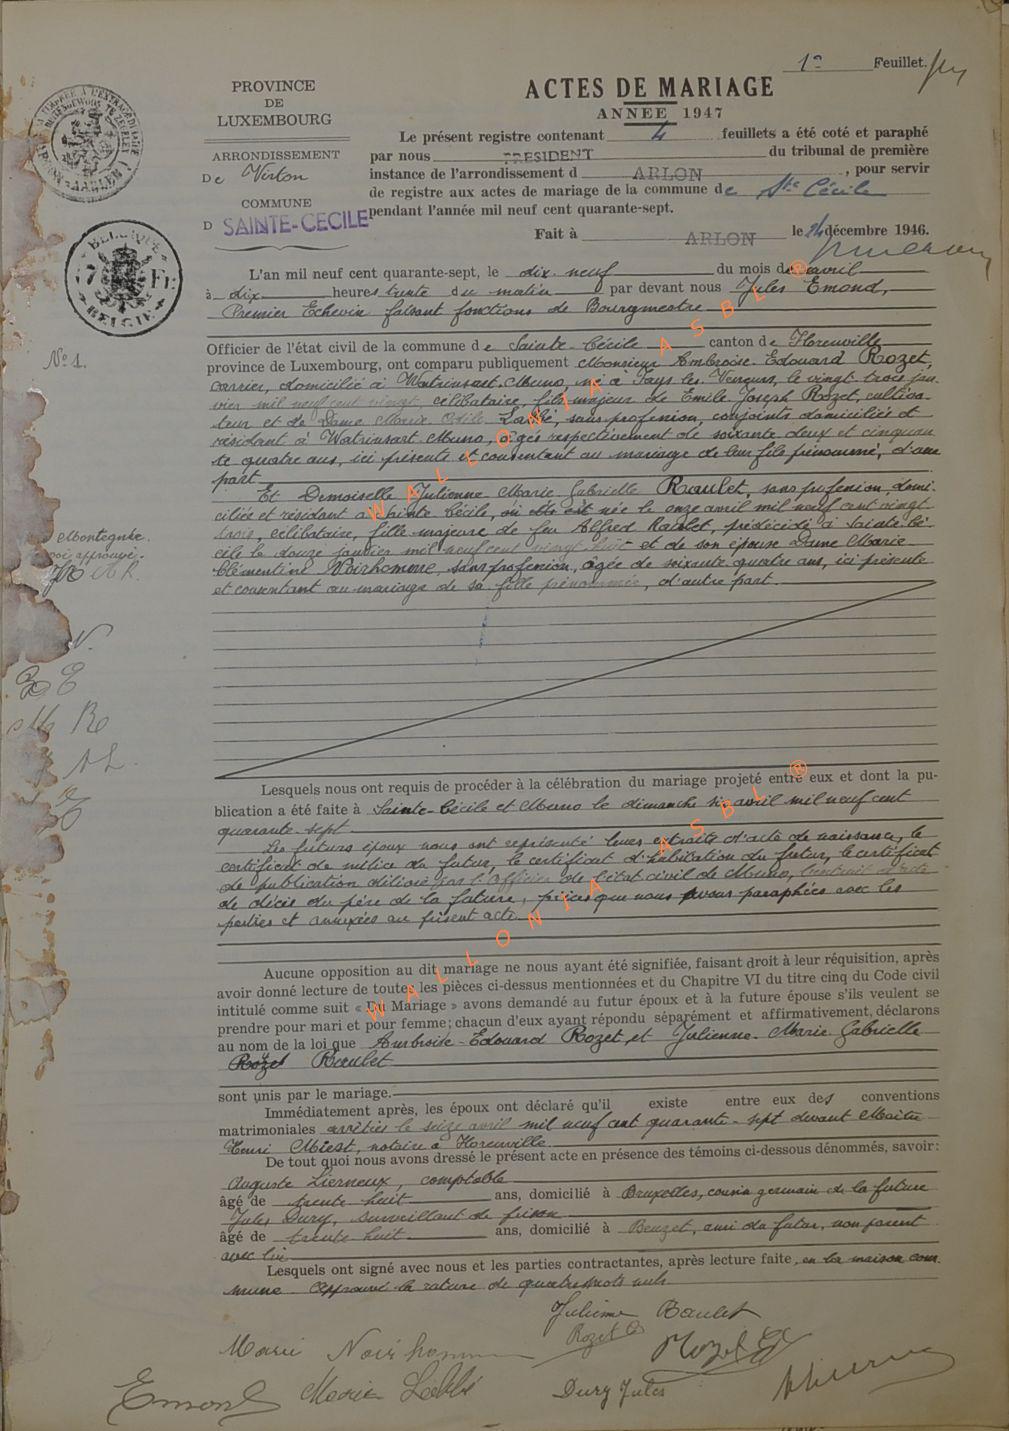 1er Feuillet.
PROVINCE
DE
LUXEMBOURG
ARRONDISSEMENT
De Virton
COMMUNE
D SAINTE-CECILE
ACTES DE MARIAGE
ANNEE 1947
Le présent registre contenant 4 feuillets a été coté et paraphé
par nous PRESIDENT du tribunal de première
instance de l'arrondissement d ARLON, pour servir
de registre aux actes de mariage de la commune de Ste Cécile
pendant l'année mil neuf cent quarante-sept.
Fait à ARLON le 24 décembre 1946.
BELGIQUE
7 Fr
BELGIE
L'an mil neuf cent quarante-sept, le dix-neuf du mois de avril
à dix heures trente du matin par devant nous Jules Emond,
Premier Echevin faisant fonctions de Bourgmestre
Officier de l'état civil de la commune de Sainte-Cécile canton de Florenville
N° 1.
province de Luxembourg, ont comparu publiquement Monsieur Ambroise-Edouard Rozet,
carrier, domicilié à Watrinsart-Muno, né à Fays les Veneurs, le vingt trois jan-
vier mil neuf cent vingt, célibataire, fils majeur de Emile Joseph Rozet, cultiva-
teur et de Dame Marie Odile Labbé, sans profession, conjoints domiciliés et
résidant à Watrinsart Muno, âgés respectivement de soixante deux et cinquan
te quatre ans, ici présents et consentant au mariage de leur fils prénommé, d'une
part
Et Demoiselle Julienne-Marie-Gabrielle Raulet, sans profession, domi-
ciliée et résidant à Sainte Cécile, où elle est née le onze avril mil neuf cent vingt-
trois, célibataire, fille majeure de feu Alfred Raulet, prédécédé à Sainte-Cé-
cile le douze janvier mil neuf cent vingt huit et de son épouse Dame Marie
Clémentine Noirhomme, sans profession, âgée de soixante quatre ans, ici présente
et consentant au mariage de sa fille prénommée, d'autre part.
Lesquels nous ont requis de procéder à la célébration du mariage projeté entre eux et dont la pu-
blication a été faite à Sainte-Cécile et Muno le dimanche six avril mil neuf cent
quarante-sept
Les futurs époux nous ont représenté leurs extraits d'acte de naissance, le
certificat de milice du futur, le certificat d'habitation du futur, le certificat
de publication délivré par l'Officier de l'état civil de Muno, l'extrait d'acte
de décès du père de la future, pièces que nous avons paraphées avec les
parties et annexées au présent acte
Aucune opposition au dit mariage ne nous ayant été signifiée, faisant droit à leur réquisition, après
avoir donné lecture de toutes les pièces ci-dessus mentionnées et du Chapitre VI du titre cinq du Code civil
intitulé comme suit « Du Mariage » avons demandé au futur époux et à la future épouse s'ils veulent se
prendre pour mari et pour femme; chacun d'eux ayant répondu séparément et affirmativement, déclarons
au nom de la loi que Ambroise-Edouard Rozet et Julienne-Marie-Gabrielle
Rozet Raulet
sont unis par le mariage.
Immédiatement après, les époux ont déclaré qu'il existe entre eux des conventions
matrimoniales arrêtées le seize avril mil neuf cent quarante-sept devant Maître
Henri Miest, notaire à Florenville
De tout quoi nous avons dressé le présent acte en présence des témoins ci-dessous dénommés, savoir:
Auguste Lierneux, comptable
âgé de trente huit ans, domicilié à Bruxelles, cousin germain de la future
Jules Dury, surveillant de prison
âgé de trente huit ans, domicilié à Beuzet, ami du futur, non parent
avec lui
Lesquels ont signé avec nous et les parties contractantes, après lecture faite, en la maison com-
mune. Approuvé la rature de quatre mots nuls
Julienne Raulet
Rozet
Marie Noirhomme
Rozet
Emond Marie Labbé Dury Jules
WALLONIA ASBL ®
WALLONIA ASBL ®